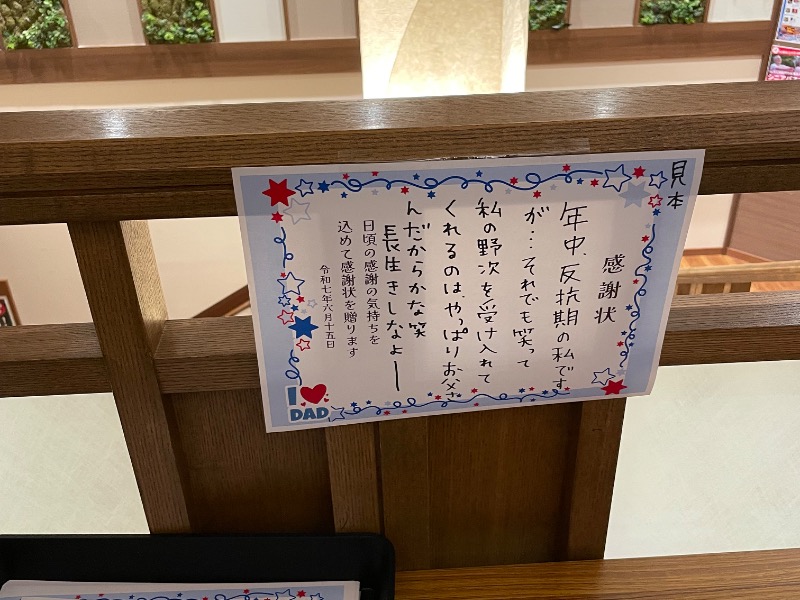 見本
感謝状
年中、反抗期の私です
が・・・それでも笑って
私の野次を受け入れて
くれるのは、やっぱりお父さ
んだからかな笑
長生きしなよー
日頃の感謝の気持ちを
込めて感謝状を贈ります
令和七年六月十五日
I
DAD